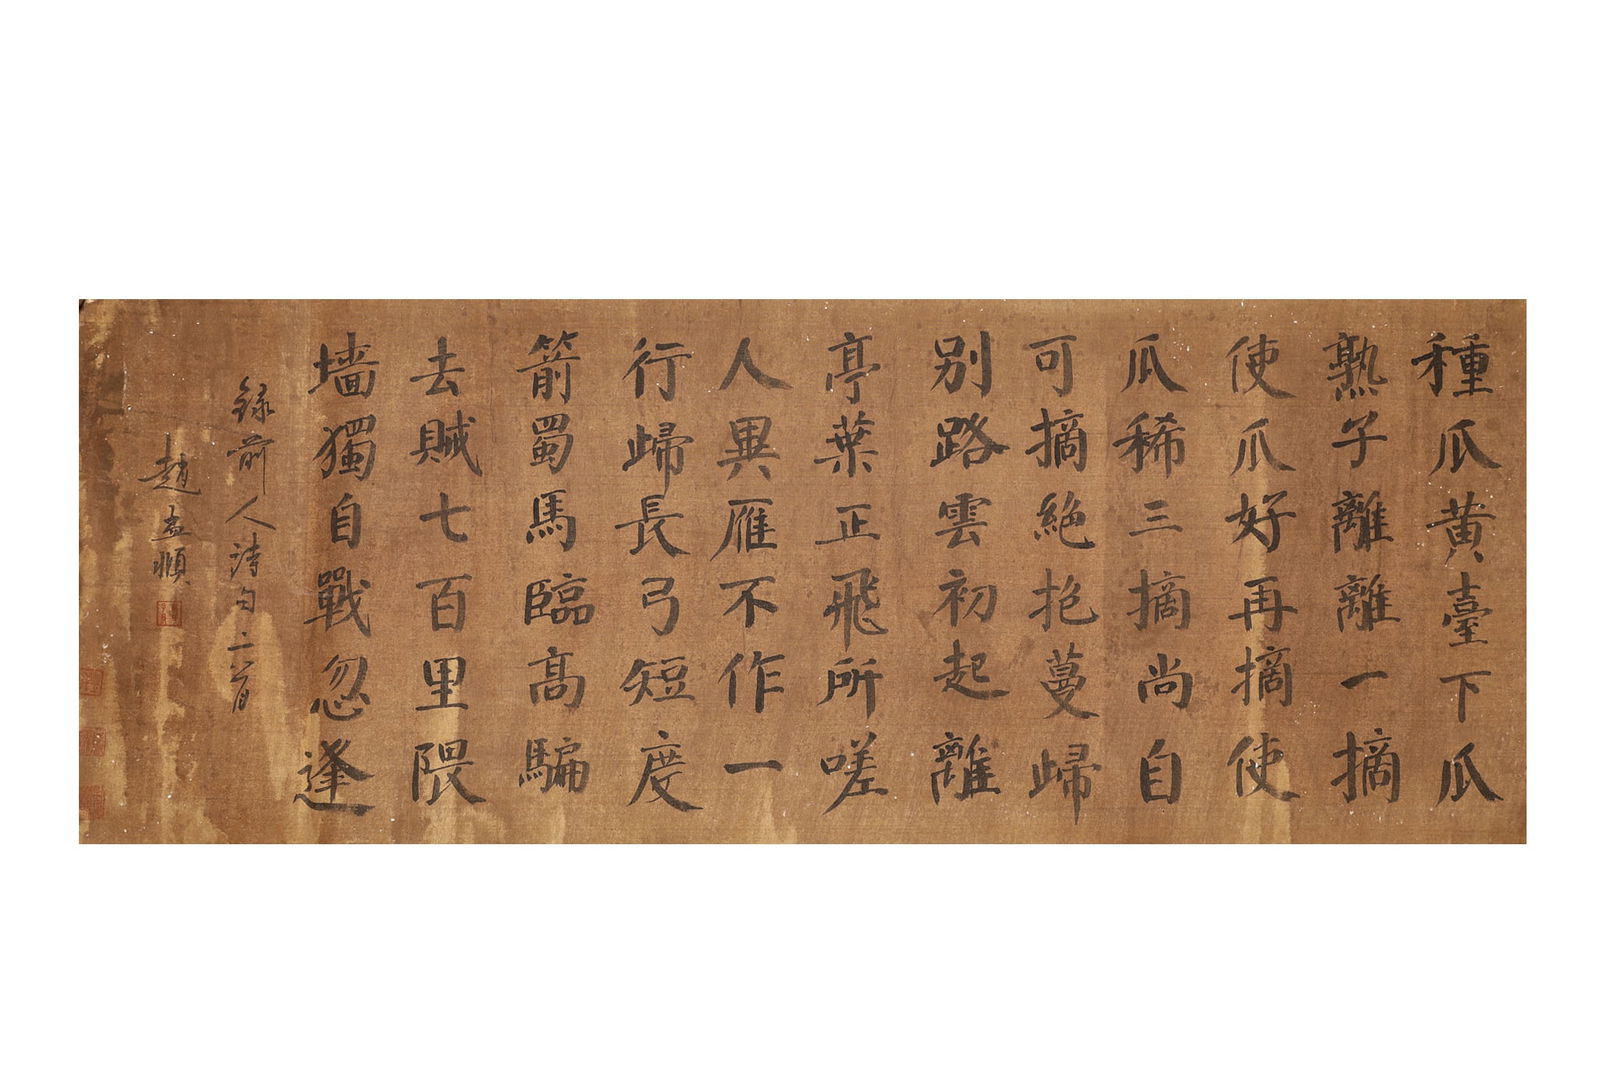 種瓜黃臺下瓜
熟子離離一摘
使瓜好再摘使
瓜稀三摘尚自
可摘絕抱蔓歸
別路雲初起離
亭葉正飛所嗟
人異雁不作一
行歸長弓短度
箭蜀馬臨高騙
去賊七百里隈
墻獨自戰忽逢
錄前人詩句二首
趙孟順